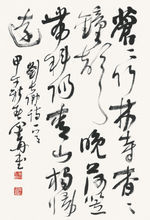 蒼〻竹林寺杳〻
鐘聲晚荷笠
帶斜陽青山獨歸
遠
劉長卿詩一首
甲午